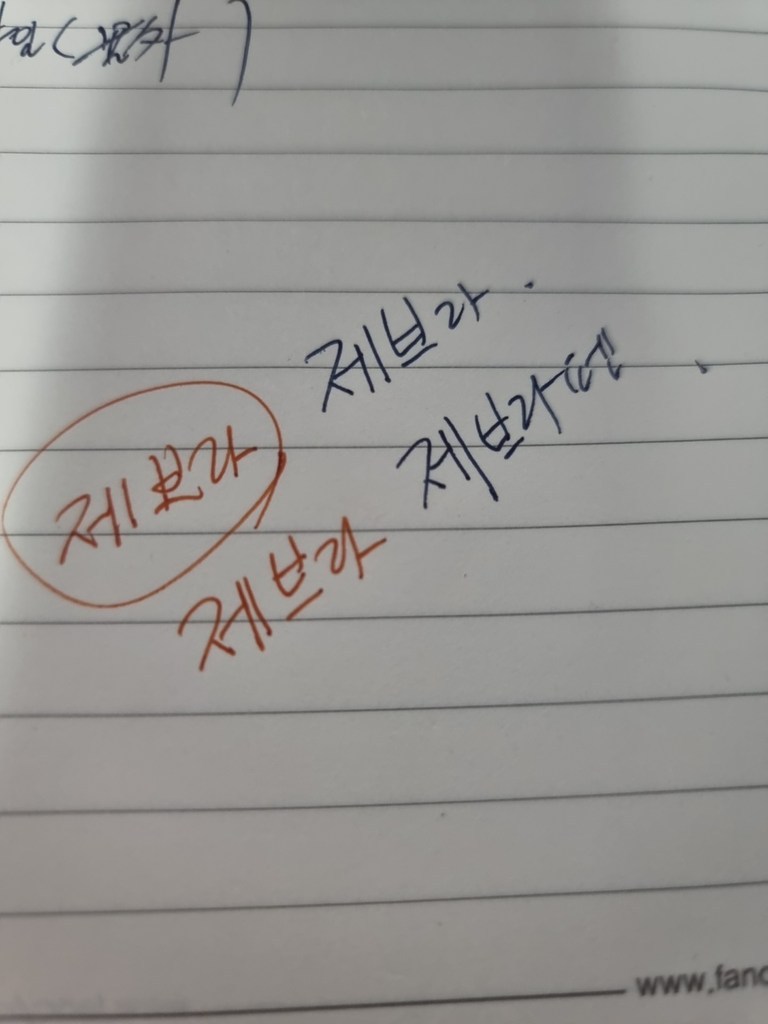 제브라.
제브라펜
제브라
제브라
www.fanc